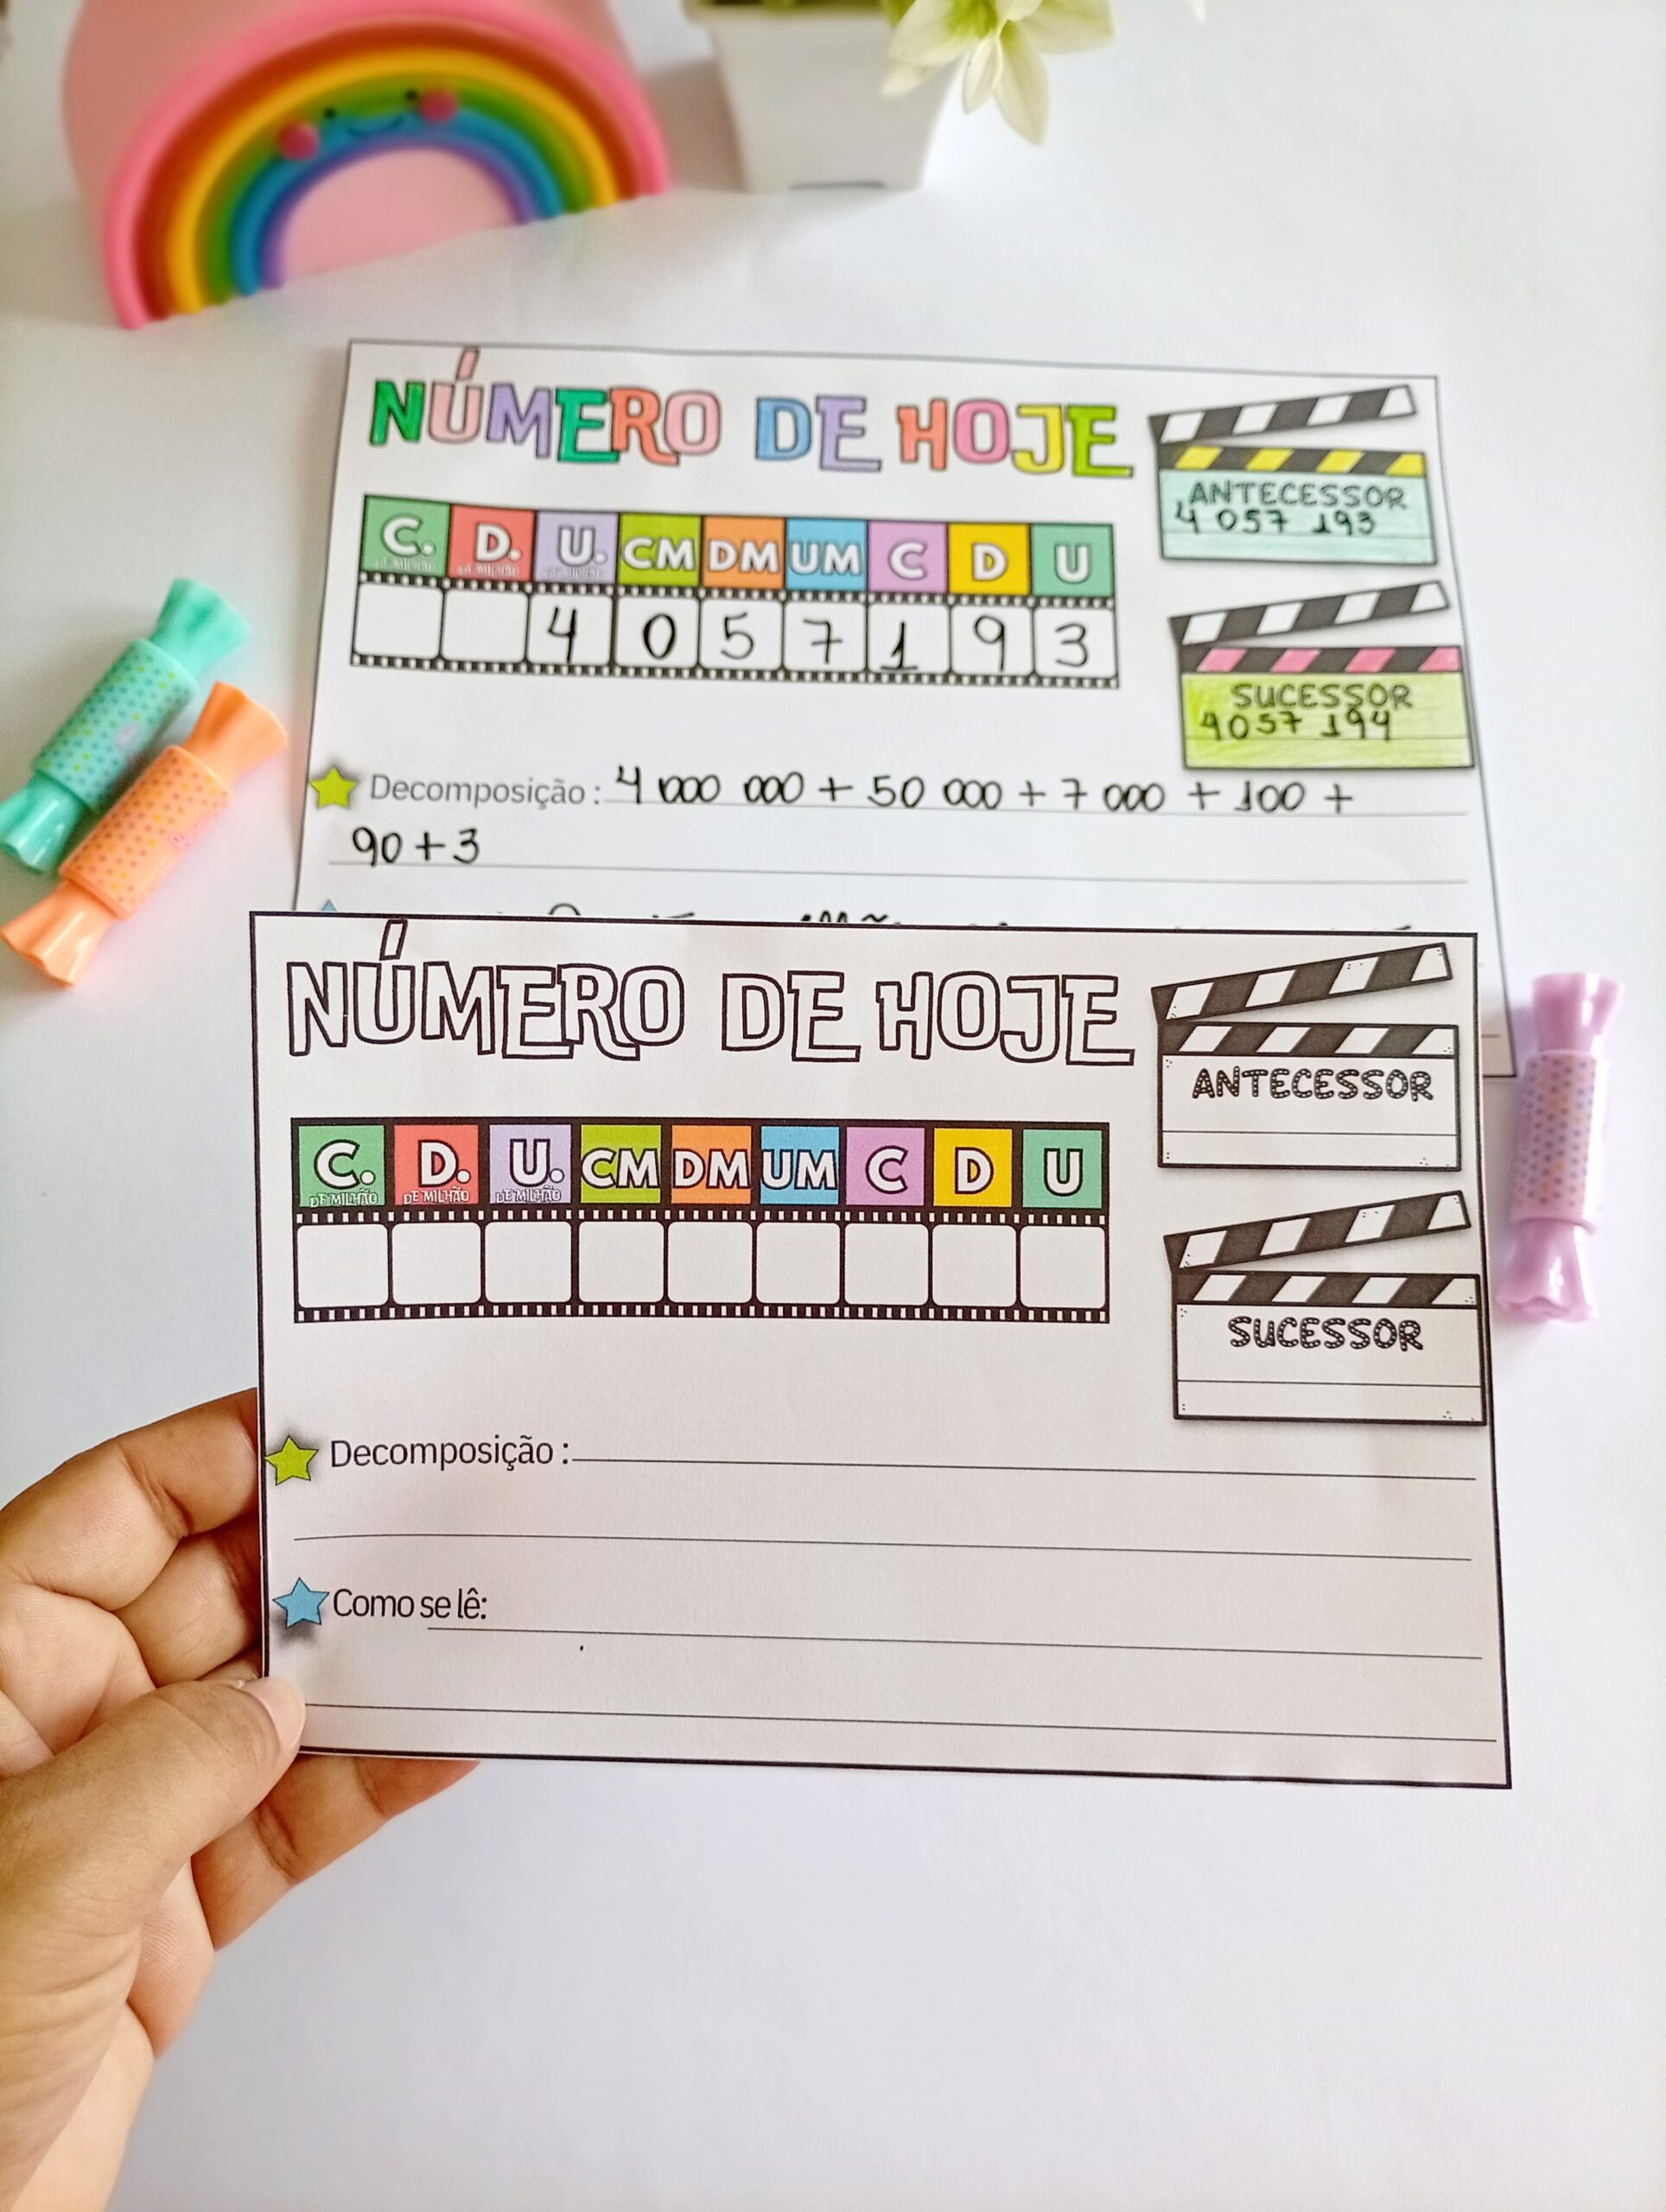 NÚMERO DE HOJE
C. D. U. CM DM UM C D U
4 0 5 7 1 9 3
ANTECESSOR
4 057 193
SUCESSOR
4057 194
Decomposição : 4 000 000 + 50 000 + 7 000 + 100 +
90 + 3
NÚMERO DE HOJE
C. D. U. CM DM UM C D U
DE MILHÃO DE MILHÃO DE MILHÃO
ANTECESSOR
SUCESSOR
Decomposição :
Como se lê: